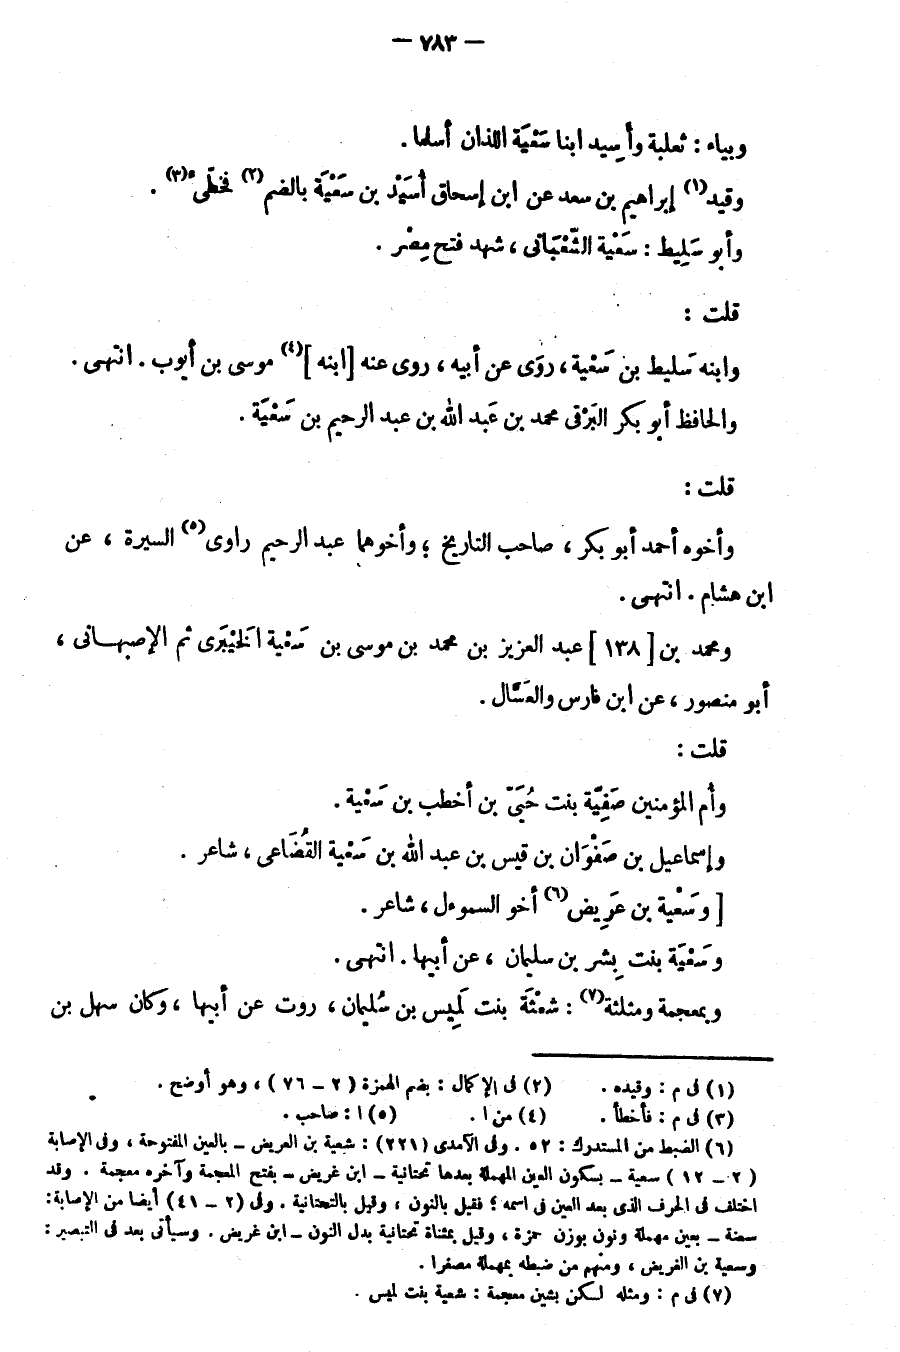 — ٧٨٣ —
وبياء : ثعلبة وأَسِيد ابنا سَعْيَة اللذان أسلما .
وقيد(١) إبراهيم بن سعد عن ابن إسحاق أُسَيْد بن سَعْيَة بالضم(٢) فخطِّىء(٣) .
وأبو سَلِيط : سَعْية الشَّعْبَانى ، شهد فتح مِصْر .
قلت :
وابنه سَليط بن سَعْية ، روَى عن أبيه ، روى عنه [ ابنه ](٤) موسى بن أيوب . انتهى .
والحافظ أبو بكر البَرْقى محمد بن عَبد الله بن عبد الرحيم بن سَعْيَة .
قلت :
وأخوه أحمد أبو بكر ، صاحب التاريخ ؛ وأخوهما عبد الرحيم راوى(٥) السيرة ، عن
ابن هشام . انتهى .
ومحمد بن [ ١٣٨ ] عبد العزيز بن محمد بن موسى بن سَعْية الخَيْبَرى ثم الإصبهانى ،
أبو منصور ، عن ابن فارس والعَسَّال .
قلت :
وأم المؤمنين صَفِيَّة بنت حُيَىّ بن أخطب بن سَعْية .
وإسماعيل بن صَفْوَان بن قيس بن عبد الله بن سَعْية القُضَاعى ، شاعر .
[ وسَعْية بن عَرِيض(٦) أخو السموءل ، شاعر .
وسَعْيَة بنت بِشر بن سليمان ، عن أبيها . انتهى .
وبمعجمة ومثلثة(٧) : شَعْثَة بنت لَمِيس بن سُليمان ، روت عن أبيها ، وكان سهل بن
(١) فى م : وقيده . (٢) فى الإكمال : بضم الهمزة ( ٢ – ٧٦ ) ، وهو أوضح .
(٣) فى م : فأخطأ . (٤) من ا . (٥) ا : صاحب .
(٦) الضبط من المستدرك : ٥٢ . وفى الآمدى (٢٢١) : شعية بن العريض – بالعين المفتوحة ، وفى الإصابة
( ٢ – ١٢ ) سعية – بسكون العين المهملة بعدها تحتانية – ابن غريض – بفتح المعجمة وآخره معجمة . وقد
اختلف فى الحرف الذى بعد العين فى اسمه ؛ فقيل بالنون ، وقيل بالتحتانية . وفى (٢ – ٤١) أيضا من الإصابة :
سعنة – بعين مهملة ونون بوزن حمزة ، وقيل بمثناة تحتانية بدل النون – ابن غريض . وسيأتى بعد فى التبصير :
وسعية بن الغريض ، ومنهم من ضبطه بمهملة مصغرا .
(٧) فى م : ومثله لكن بشين معجمة : شعية بنت لميس .